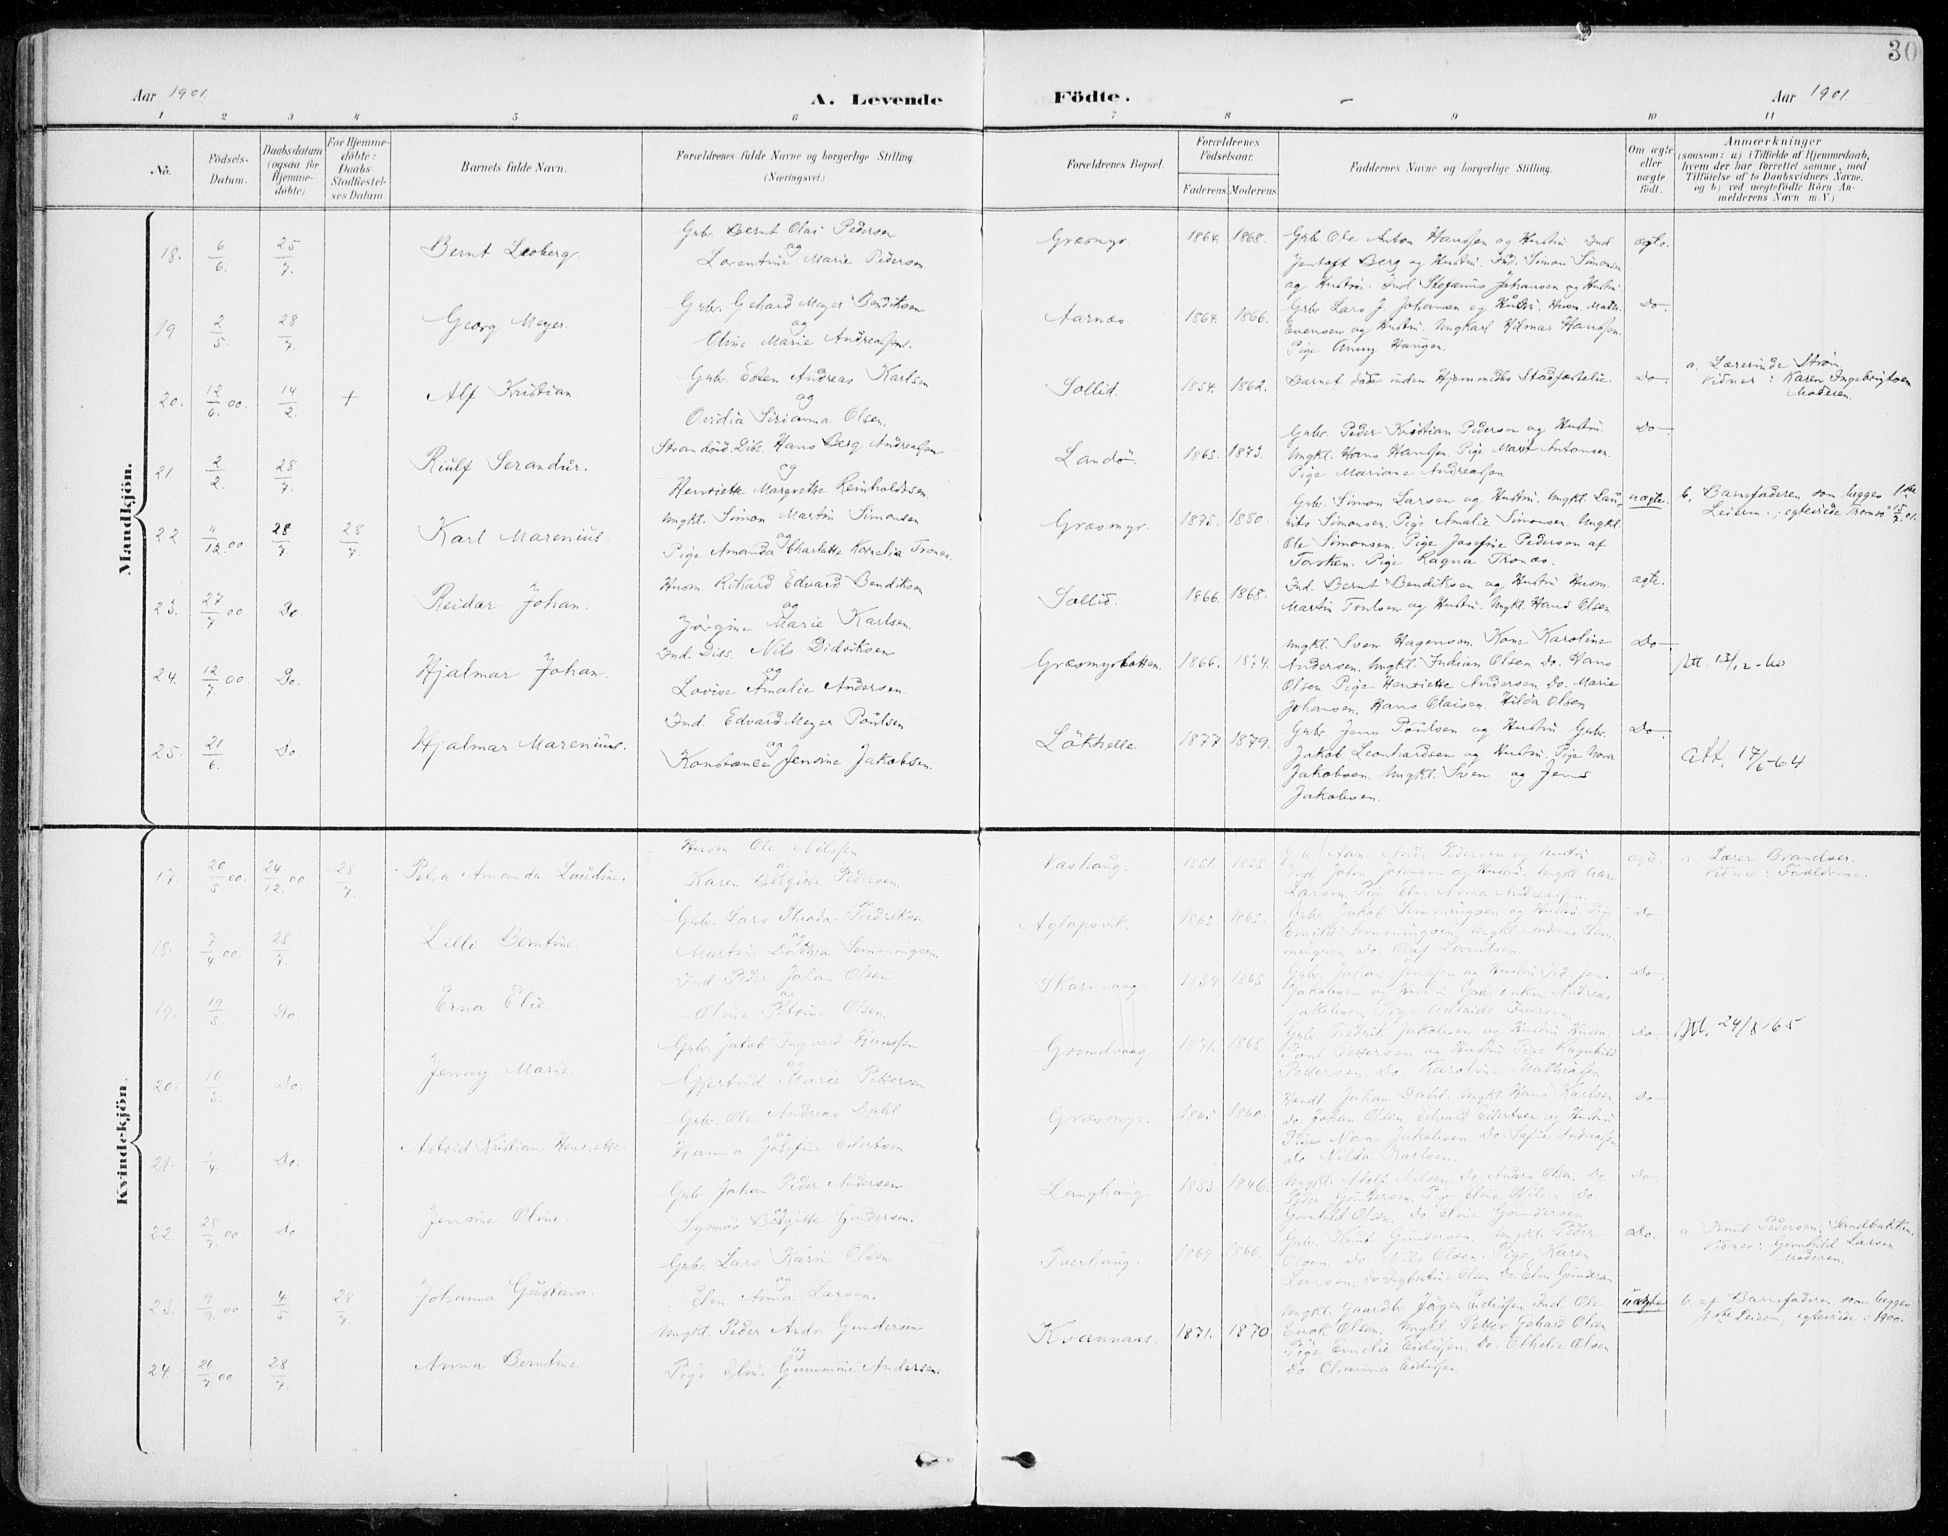 30
Aar 1901. A. Levende Födte. Aar 1901
1 2 3 4 5 6 7 8 9 10 11
No. Födsels-Datum. Daabsdatum (ogsaa for Hjemme-döbte). For Hjemme-döbte: Daabs-Stadfæstel-ses Datum. Barnets fulde Navn. Forældrenes fulde Navne og borgerlige Stilling. (Næringsvei.) Forældrenes Bopæl. Forældrenes Födselsaar. Faderens. Moderens. Faddernes Navne og borgerlige Stilling. Om ægte eller uægte födt. Anmærkninger (saasom: a) i Tilfælde af Hjemmedaab, hvem der har forrettet samme, med Tilföielse af to Daabsvidners Navne. og b) ved uægtefödte Börn An-melderens Navn m. V.)
Mandkjön.
18. 6/6. 25/7. Bernt Leoberg.
Grb. Bernt Olai Pedersen
og
Lorentine Marie Pederson
Græsmyr. 1864. 1868.
Grb Ole Anton Hanssen og Hustru. Ind
Jentoft Berg og Hustru. Ind. Simon Simonsen
og Hustru. Ind Stefanus Johansen og Hustru
ægte.
19. 2/5. 28/7. Georg Meyer.
Grbr. Gehard Meyer Bendiksen
og
Oline Marie Andreassen.
Aarnæs. 1864. 1866.
Grbr Lars J. Johansen og Hustru. Husm. Math.
Evensen og Hustru. Ungkarl Hilmar Hanssen.
Pige Anny Haugen.
Do
20. 12/6.00. 14/2. + Alf Kristian
Grb. Esten Andreas Karlsen
og
Ovidia Sirianna Olsen.
Sollid. 1854. 1862.
Barnet döde inden Hjemmedbs Stadfæstelse.
Do
a. Lærerinde Strøm
Vidner: Karen Ingebrigtsen
Moderen.
21 2/2. 28/7. Riulf Serandur.
Strandsid. Dibs. Hans Berg Andreassen
og
Henriette Margrethe Reinholdtsen.
Landö. 1865. 1873.
Grbr. Peder Kristian Pedersen og Hustru
Ungkl. Hans Hanssen. Pige Marit Antonsen.
Pige Mariane Andreassen
Do
22 "/12.00 28/7. 28/7. Karl Marenius.
Ungkl. Simon Martin Simonsen
og
Pige Amanda Charlotte Kornelia Tronæs.
Græsmyr. 1875. 1880.
Grb. Simon Larsen og Hustru. Ungkl. Lau-
rits Simonsen. Pige Amalie Simonsen. Ungkl
Ole Simonsen. Pige Josefine Pedersen af
Torsken. Pige Ragna Tronæs.
uægte
b. Barnefaderen som begges 1ste
Leierm.; egteviede Tromsö 15/7.01.
23. 27/7 00 Do Reidar Johan.
Husm. Rikard Edvard Bendiksen
og
Jørgine Marie Karlsen.
Sollid. 1866. 1868.
Ind. Bernt Bendiksen og Hustru Husm.
Martin Poulsen og Hustru. Ungkl. Hans Olsen
ægte.
24. 12/7 00. Do. Hjalmar Johan.
Ind. Dibs. Nils Didriksen
og
Lovise Amalie Andersen
Græsmyrbotten. 1866. 1874.
Ungkl. Sven Hagensen. Kone Karoline
Andersen. Ungkl. Indian Olsen do. Hans
Olsen Pige Henriette Andersen Do. Marie
Johansen. Hans Olaisen. Hilda Olsen
Do
Att. 13/12-60
25. 21/6. Do Hjalmar Marenius.
Ind. Edvard Meyer Poulsen
og
Konstance Jensine Jakobsen.
Lökhelle. 1877. 1879.
Grbr. Jens Poulsen og Hustru Grbr.
Jakob Leonhardsen og Hustru Pige Nora
Jakobsen. Ungkl. Sven og Jens
Jakobsen.
Do
Att. 17/6-64
Kvindekjön.
17. 20/5 00. 24/12.00 28/7. Petra Amanda Laudine.
Husm Ole Nilssen
og
Karen Birgitte Pedersen.
Vashaug. 1851.
Larsen. Pige Elen Anna Andreassen
ægte.
a. Lærer Brandser.
Vidner: Forældrene.
18. 7/4 00. 28/7. Lilli Berntine.
Grb. Lars Theodor Fredriksen
og
Martine Dorthea Semmingsen
Aglapsvik. 1865. 1865.
Grbr. Jakob Semmingsen og Hustru Pige
Emilie Semmingsen Ungkl Andreas Sem-
mingsen do. Olaf Lorentsen.
Do
19. 19/5. Do. Erna Elie.
Ind Peder Johan Olsen
og
Oline Petrine Olsen.
Skarsvaag 1859. 1865.
Grb. Johan Jenssen og Hustru Ind Jens
Jakobsen og Hustru Andreas
Jakobsen. Pige Adelaide Iversen
Do
20. 16/3. Do. Jenny Marie.
Grb. Jakob Ingvard Hanssen
og
Gjertrud Marie Pettersen
Grundvaag. 1871. 1868
Grb. Fredrik Jakobsen og Hustru Husm.
Paul Pettersen og Hustru Pige Ragnhild
Pettersen Do. Karoline Mathiassen
Do
Att. 24/8-65
21. 1/4. Do. Astrid Kristiane Henriette.
Grb. Ole Andreas Dahl.
og
Hanna Josefine Edvartsen
Græsmyr. 1865 1860.
Handl. Johan Dahl. Ungkl Hans Karlsen
do Johan Olsen. Edvard Edvartsen og Hustru
Pige Nora Jakobsen. Do. Sofie Andreassen
do Nilda Karlsen.
Do
22. 28/7.00. Do Jensine Oline.
Grb. Johan Peder Andersen
og
Birgitte Gundersen.
Langhaug. 1853. 1846.
Ungkl. Adolf Nilsen. Do. Do
Peder Gundersen. Pige Elise Nilsen Do.
Gunhild Olsen. Do. Eline Gundersen
Do
23. 9/9.00 4/5 28/7. Johanna Gustava.
Grb. Lars Karin Olsen
og
Elen Anna Larsen.
Tverhaug. 1869. 1866.
Grb. Knut Gundersen. Ungkl. Peder
Olsen, Do. Nils Olsen. Pige Karen
Larsen. Do Ingbertine Olsen Do. Elen Gundersen
Do.
a. Knut Pedersen, Sandbakken.
Vidner: Gunhild Larsen
Moderen.
24 21/7 00. 28/7 Anna Berntine.
Ungkl. Peder Andr. Gundersen
og
Pige Eline Gummine Andersen.
Kvannaas. 1871. 1870
Ungkl. Gaardbr. Jörgen Eidissen Ind. Ole
Enok Olsen. Ungkl Petter Gehard Olsen
Pige Emelie Eidissen. Do. Othelie Olsen
Do. Olianna Eidissen
uægte
b. af Barnefaderen som begges
1ste Leierm. egteviede: 1900.